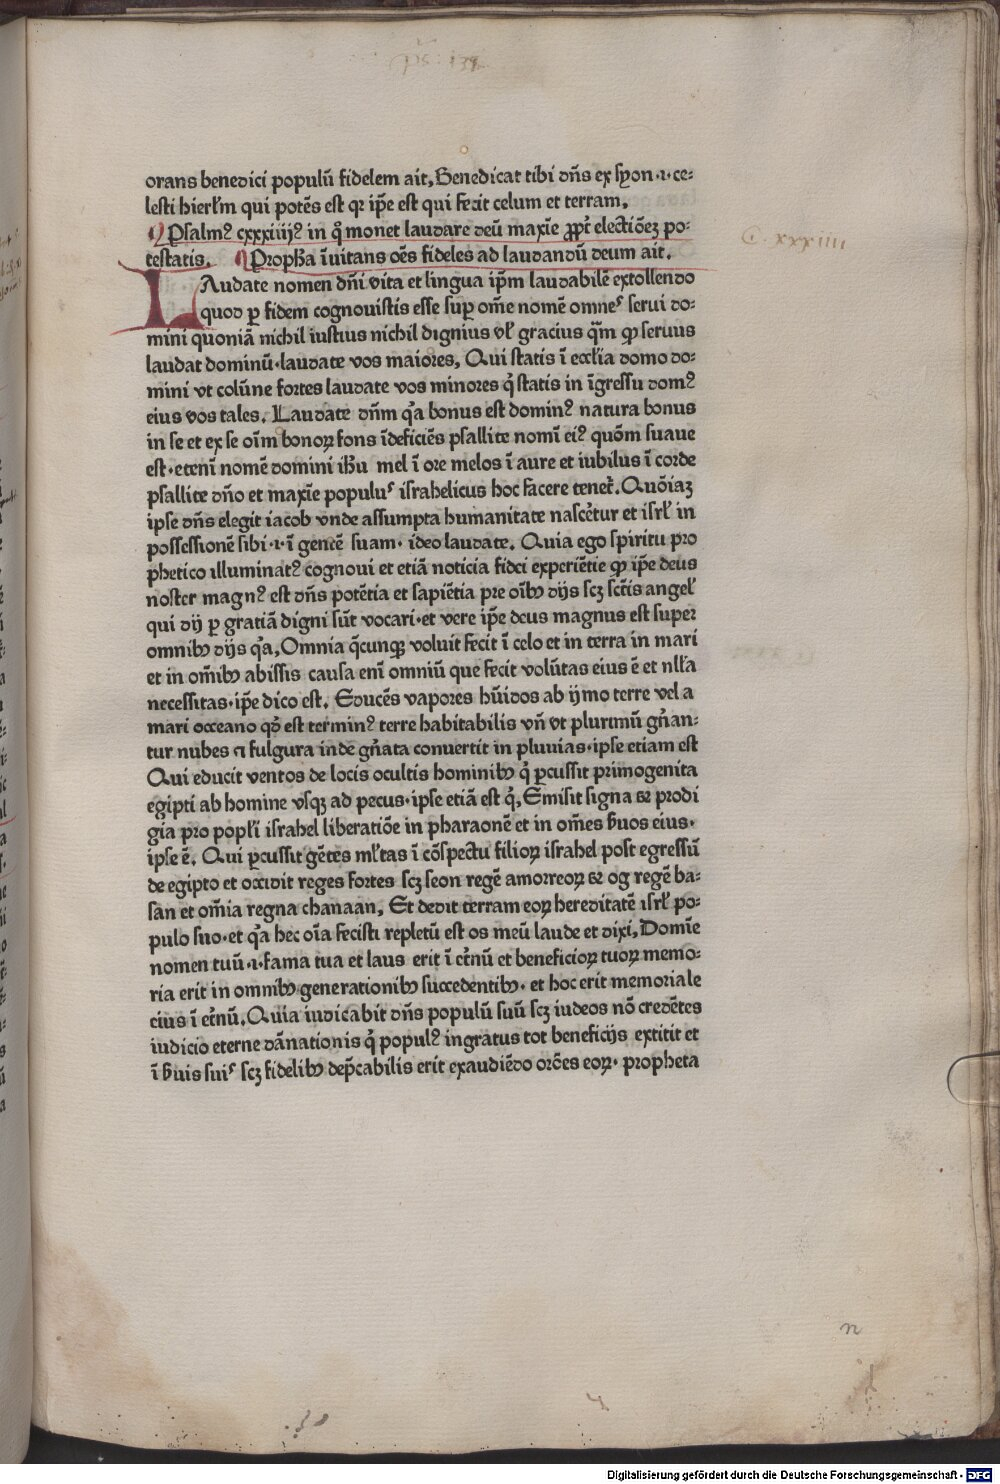 ps: 134
orans benedici populū fidelem ait, Benedicat tibi dñs ex syon ·ı· ce⸗
lesti hierłm qui potēs est qr ip̄e est qui fecit celum et terram,
Psalmꝰ cxxxiiijꝰ in q̇ monet laudare deū maxīe ꝓpt̄ electiōeꝫ po⸗
testatis. Propħa īuitans oēs fideles ad laudandū deum ait.
LAudate nomen dñi vita et lingua ip̄m laudabilē extollendo
quod ꝑ fidem cognouistis esse suꝑ om̄e nomē omneˢ serui do⸗
mini quoniā nichil iustius nichil dignius vł gracius q̄m ꝙ seruus
laudat dominū·laudate vos maiores, Qui statis ī eccłia domo do⸗
mini vt colūne fortes laudate vos minores q̇ statis in īgressu domꝰ
eius vos tales. Laudate dñm q̇a bonus est dominꝰ natura bonus
in se et ex se oīm bonoꝝ fons īdeficiēs psallite nomī eiꝰ quōm suaue
est·etenī nomē domini iħu mel ī ore melos ī aure et iubilus ī corde
psallite dño et maxīe populuˢ israhelicus hoc facere tenet̄. Quōiaꝫ
ipse dñs elegit iacob vnde assumpta humanitate nascēt̄ur et isrł in
possessionē sibi ·ı· ī gentē suam· ideo laudate. Quia ego spiritu pro
phetico illuminatꝰ cognoui et etiā noticia fidei experiētie ꝙ ip̄e deus
noster magnꝰ est dñs potētia et sapiētia pre oībꝫ dijs scꝫ sct̄is angeł
qui dij ꝑ gratiā digni sūt vocari·et vere ip̄e deus magnus est super
omnibꝫ dijs q̇a, Omnia q̄cunqꝫ voluit fecit ī celo et in terra in mari
et in om̄ibꝫ abissis causa enī omniū que fecit volūtas eius ē et nłła
necessitas·ip̄e dico est. Educēs vapores hūidos ab ijmo terre vel a
mari occeano qd̄ est terminꝰ terre habitabilis vñ vt plurimū gñan⸗
tur nubes ⁊ fulgura inde gñata conuertit in pluuias·ipse etiam est
Qui educit ventos de locis ocultis hominibꝫ q̇ ꝑcussit primogenita
egipti ab homine vsqꝫ ad pecus·ipse etiā est q̇, Emisit signa ꝛ prodi
gia pro popłi israhel liberatiōe in pharaonē et in om̄es ẜuos eius·
ipse ē. Qui ꝑcussit gētes młtas ī cōspectu filioꝝ israhel post egressū
de egipto et occidit reges fortes scꝫ seon regē amorreoꝝ ꝛ og regē ba⸗
san et om̄ia regna chanaan, Et dedit terram eoꝝ hereditatē isrł po⸗
pulo suo·et q̇a hec oīa fecisti repletū est os meū laude et dixi, Domīe
nomen tuū ·ı· fama tua et laus erit ī et̄nū et beneficioꝝ tuoꝝ memo⸗
ria erit in omnibꝫ generationibꝫ succedentibꝫ· et hoc erit memoriale
eius ī et̄nū. Quia iudicabit dñs populū suū scꝫ iudeos nō credētes
iudicio eterne dānationis q̇ populꝰ ingratus tot beneficijs extitit et
ī ẜuis suiˢ scꝫ fidelibꝫ dep̄cabilis erit exaudiēdo orōes eoꝝ· propheta
C. xxxiiii
n
Digitalisierung gefördert durch die Deutsche Forschungsgemeinschaft - DFG